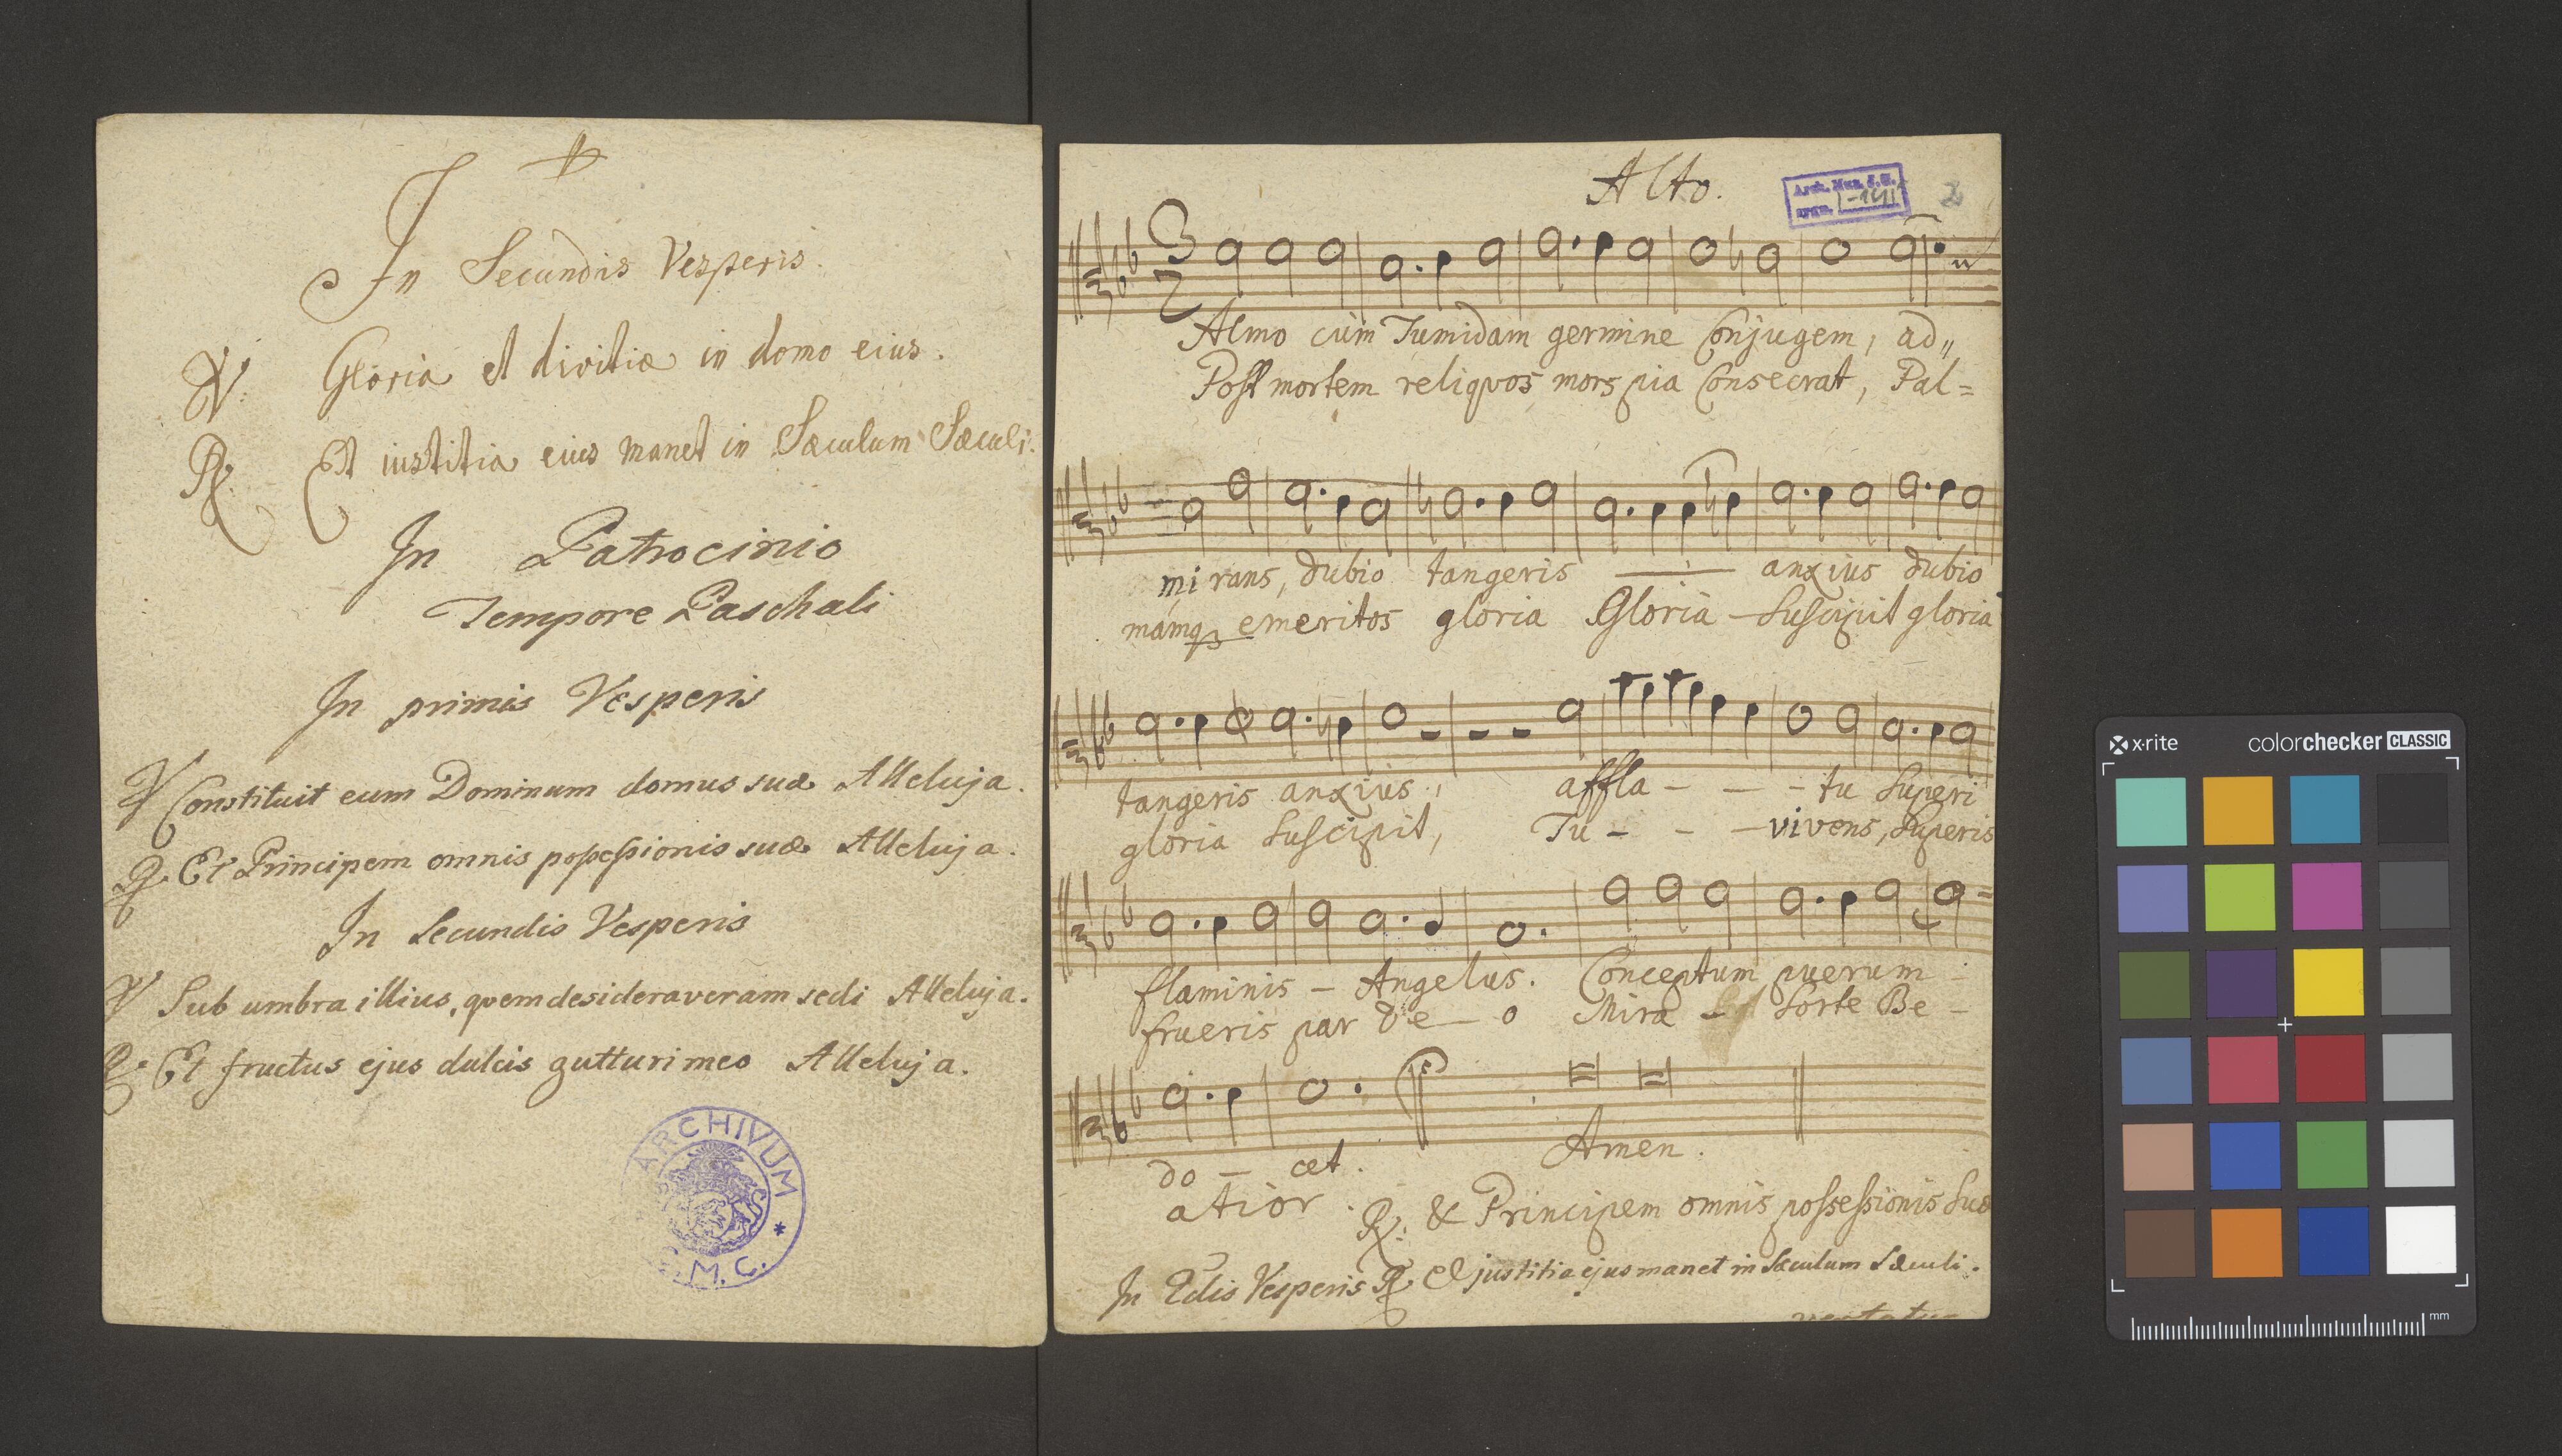 In Secundis Vesperis.
℣. Gloria et divitiæ in domo eius.
℟. Et iustitia eius manet in Sæculum Sæculi.
In Patrocinio
Tempore Paschali
In primis Vesperis
℣ Constituit eum Dominum domus suæ Alleluja.
℟. Et Principem omnis possessionis suæ Alleluja.
In Secundis Vesperis
℣ Sub umbra illius, quem desideraveram sedi Alleluja.
℟. Et fructus ejus dulcis gutturi meo Alleluja.
ARCHIVUM
M. C.
Alto.
Arch. Mus.
2
Almo cùm Tumidam germine Conjugem, ad„
Post mortem reliquos mors pia Consecrat, Pal=
mi rans, dubio tangeris anxius dubio
mamq3 emeritos gloria Gloria – Suscipit gloria
tangeris anxius, affla - - - tu Superi
gloria Suscipit, Tu - - - vivens, Superis
flaminis – Angelus. Conceptum puerum
frueris par De – o Mira – Sorte Be –
do – cet. Amen.
atior.
℟. & Principem omnis possessionis Suæ
In 2dis Vesperis ℟ Et justitia ejus manet in Sæculum Sæculi.
x-rite
colorchecker CLASSIC
mm